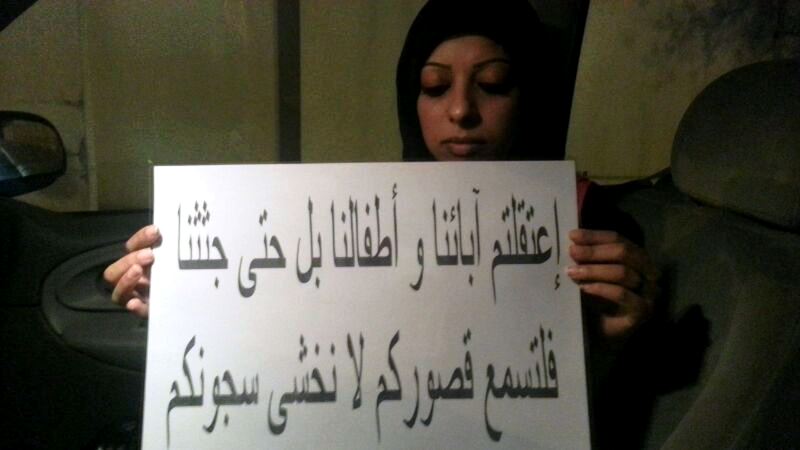 إعتقلتم آبائنا و أطفالنا بل حتى جثثنا
فلتسمع قصوركم لا نخشى سجونكم